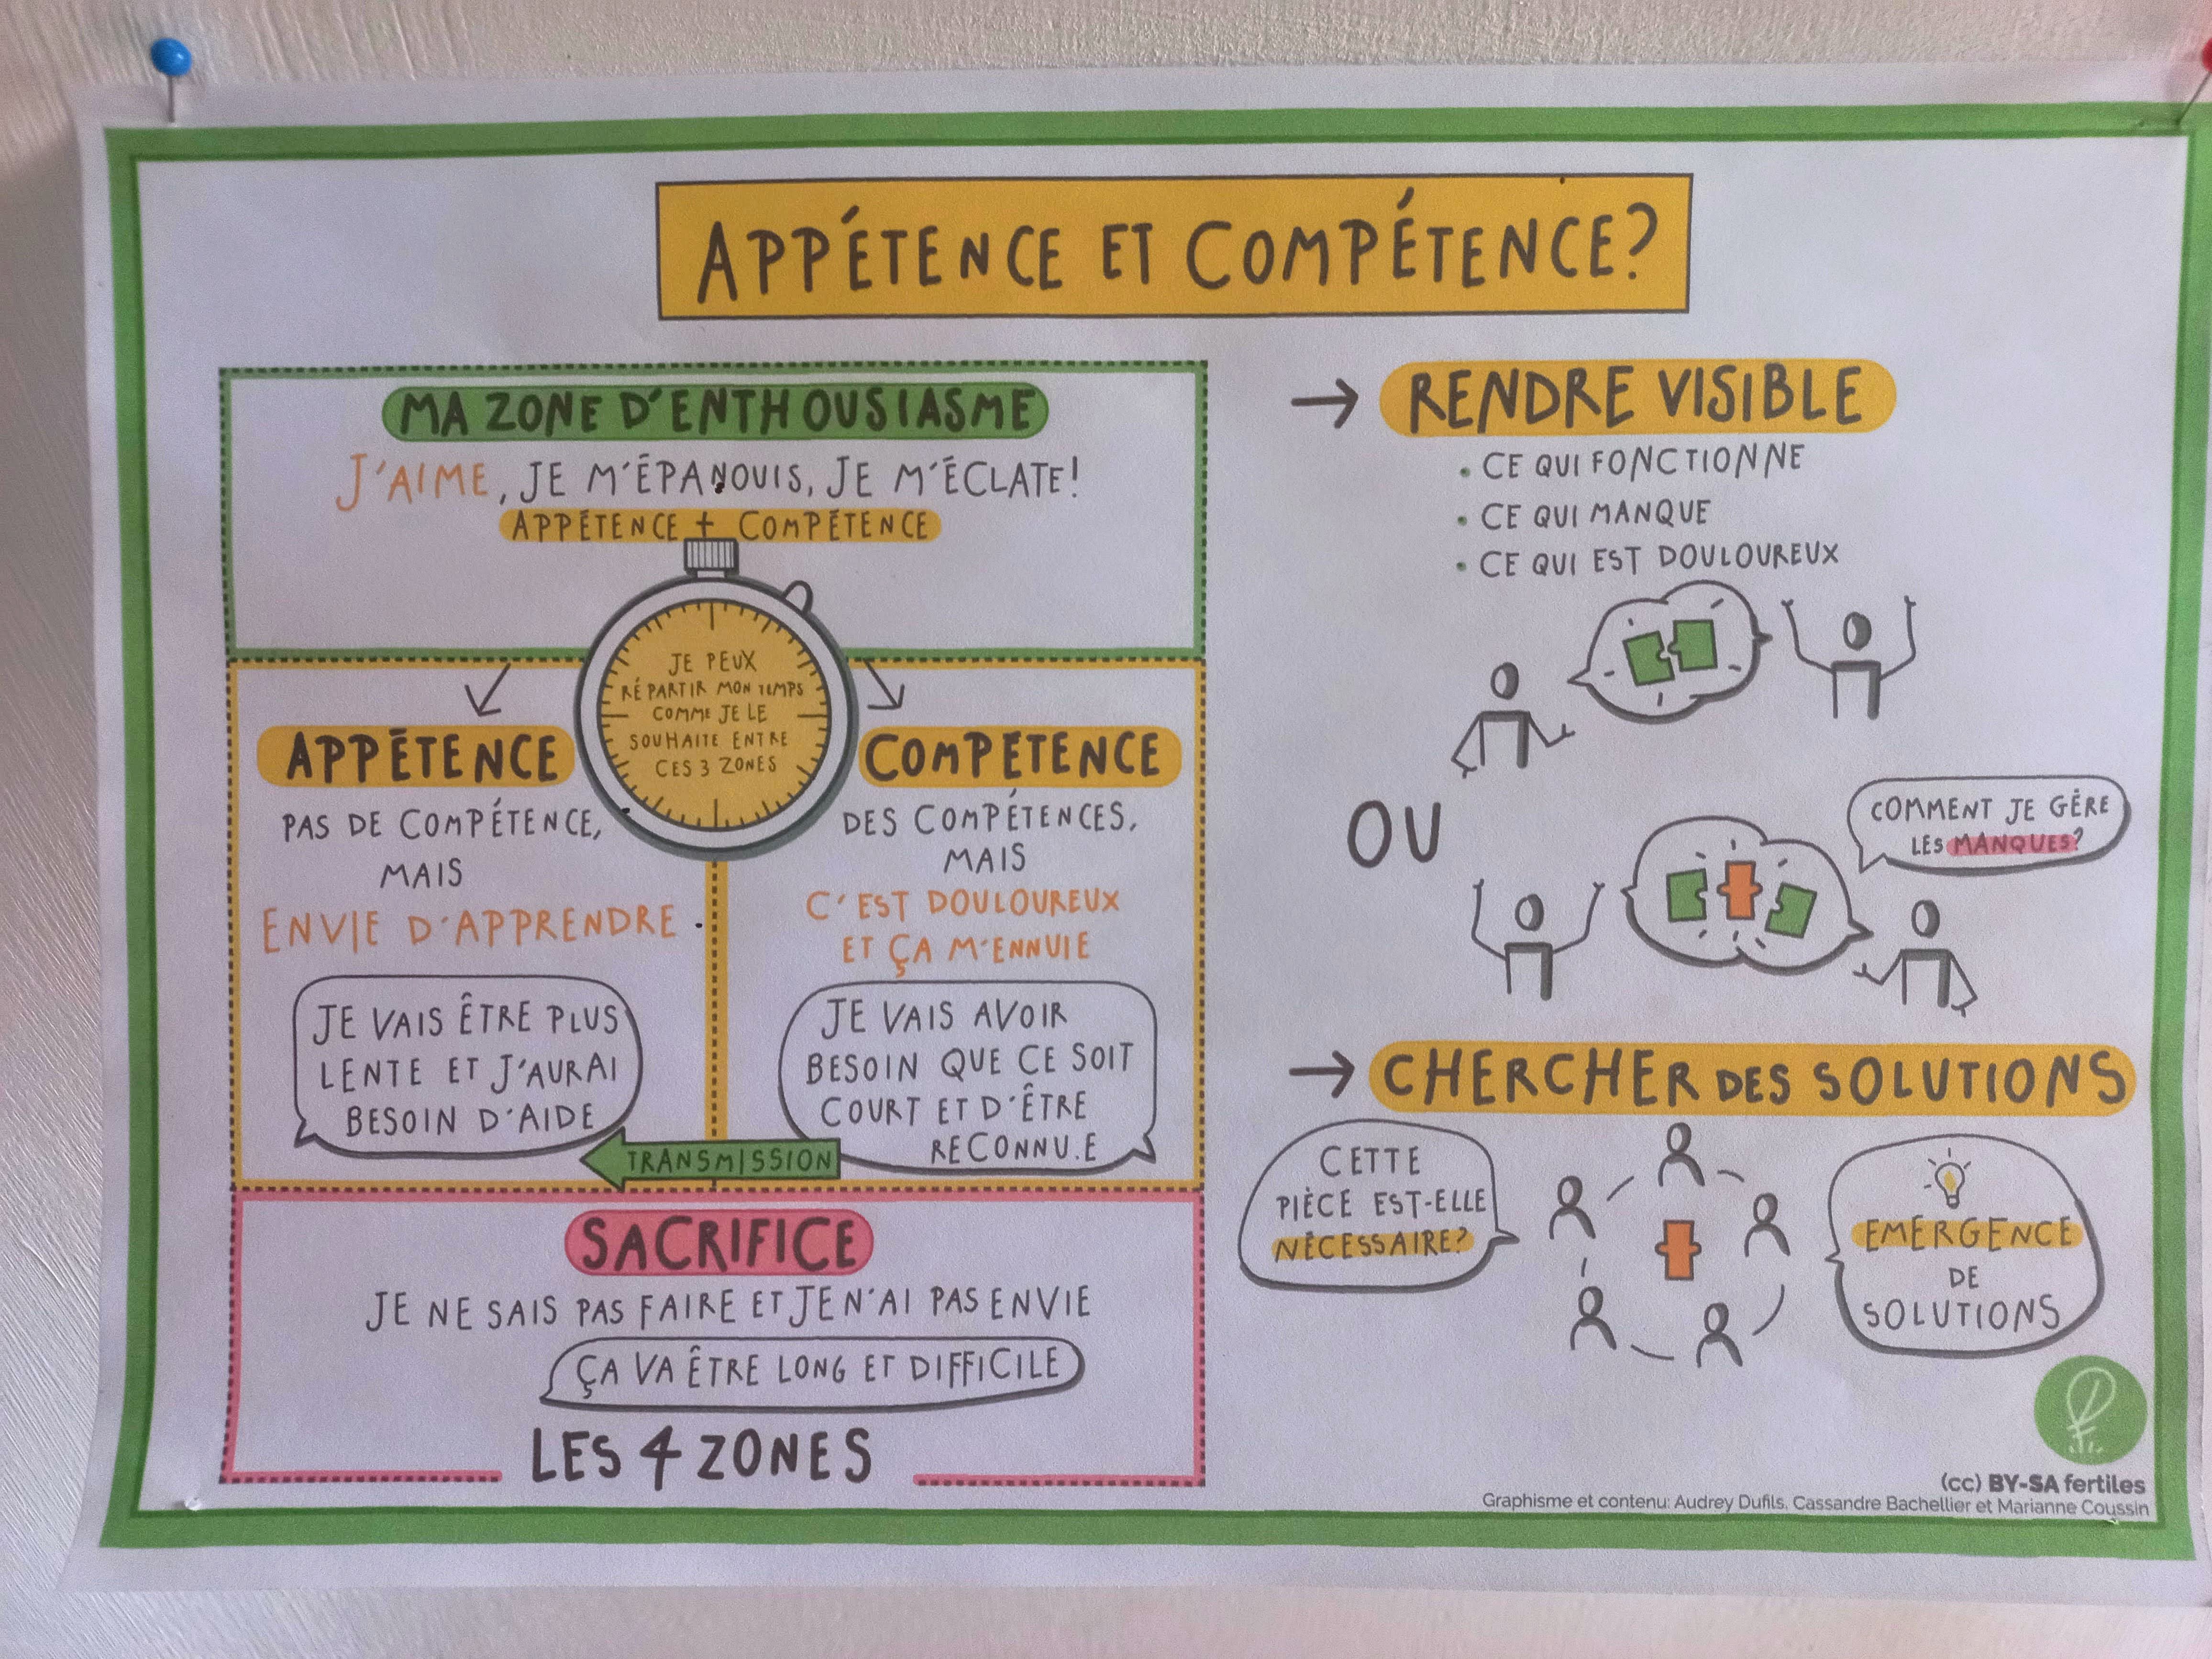 APPÉTENCE ET COMPÉTENCE?
MA ZONE D'ENTHOUSIASME
J'AIME, JE M'ÉPANOUIS, JE M'ÉCLATE!
APPÉTENCE + COMPÉTENCE
JE PEUX
RÉPARTIR MON TEMPS
COMME JE LE
SOUHAITE ENTRE
CES 3 ZONES
APPÉTENCE
PAS DE COMPÉTENCE,
MAIS
ENVIE D'APPRENDRE
JE VAIS ÊTRE PLUS
LENTE ET J'AURAI
BESOIN D'AIDE
COMPÉTENCE
DES COMPÉTENCES,
MAIS
C'EST DOULOUREUX
ET ÇA M'ENNUIE
JE VAIS AVOIR
BESOIN QUE CE SOIT
COURT ET D'ÊTRE
RECONNU.E
TRANSMISSION
SACRIFICE
JE NE SAIS PAS FAIRE ET JE N'AI PAS ENVIE
ÇA VA ÊTRE LONG ET DIFFICILE
LES 4 ZONES
→ RENDRE VISIBLE
• CE QUI FONCTIONNE
• CE QUI MANQUE
• CE QUI EST DOULOUREUX
OU
COMMENT JE GÈRE
LES MANQUES?
→ CHERCHER DES SOLUTIONS
CETTE
PIÈCE EST-ELLE
NÉCESSAIRE?
EMERGENCE
DE
SOLUTIONS
(cc) BY-SA fertiles
Graphisme et contenu: Audrey Dufils, Cassandre Bachellier et Marianne Coussin